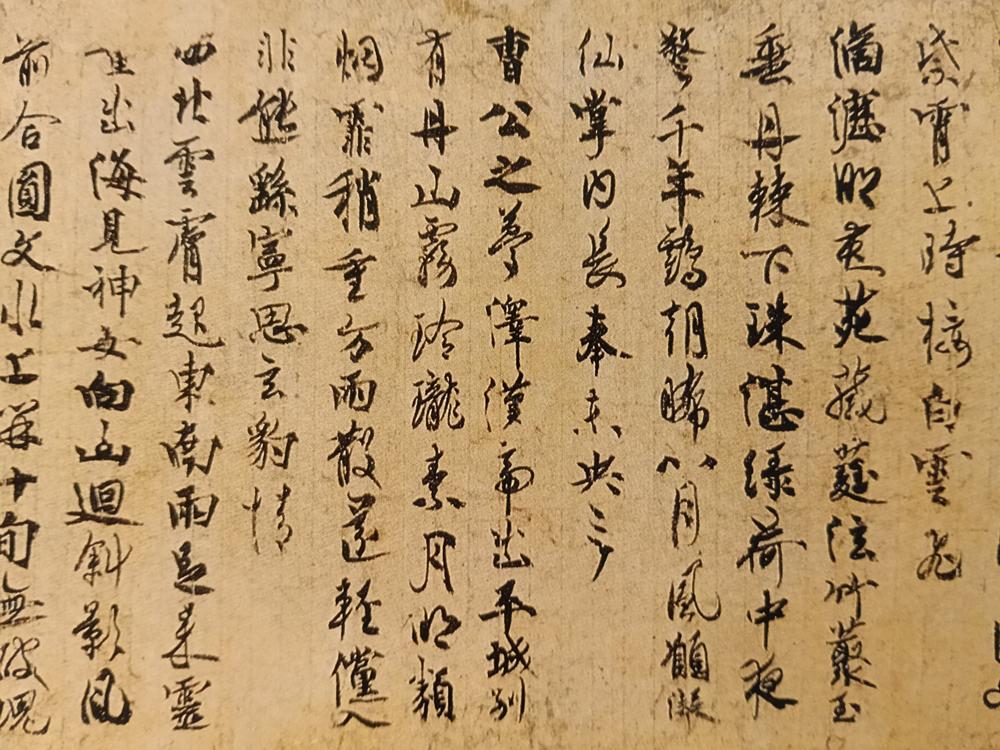 紫霄上時接白雲飛
滴瀝明苑葳蕤泫竹叢玉
垂丹棘下珠湛綠荷中夜
警千年鶴朝晞八月風願凝
仙掌內長奉未央宮
曹公之夢澤漢帝出平城別
有丹山霧玲瓏素月明類
烟霏稍重方雨散還輕儻入
非熊繇寧思玄豹情
西北雲膚起東南雨足來靈
出海見神女向山迴斜影風
前合圓文水上開十旬無破塊